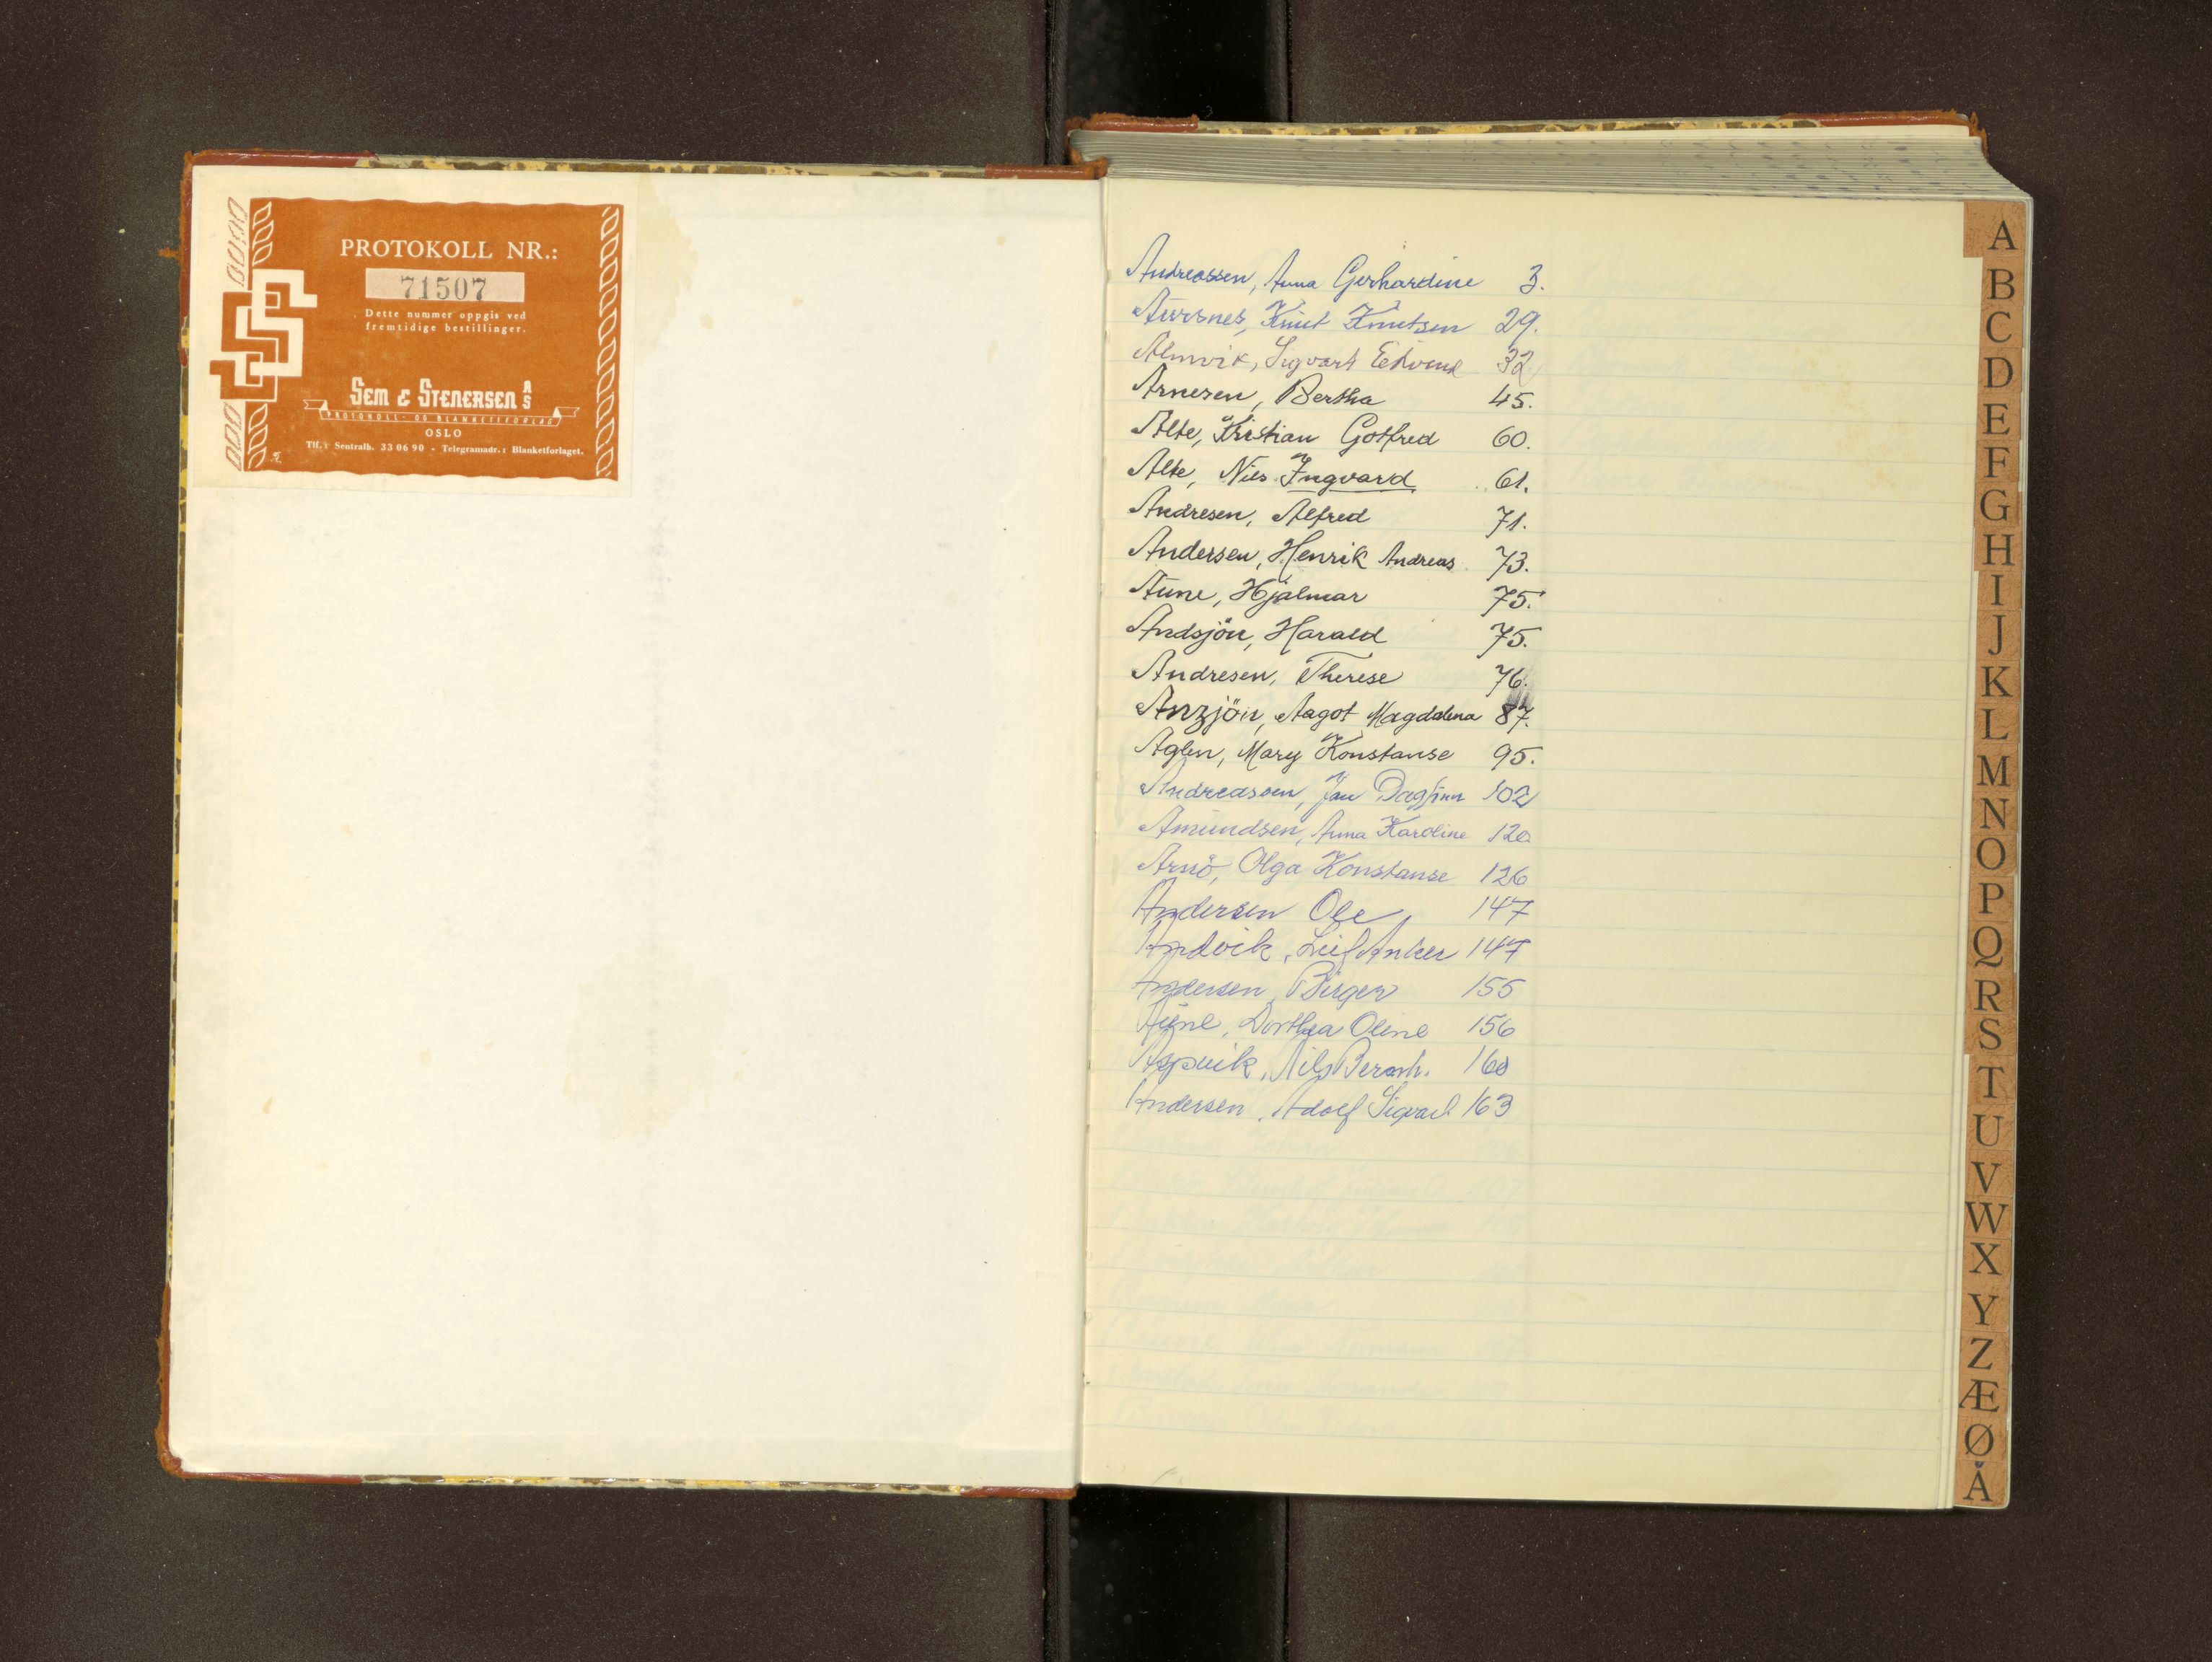 PROTOKOLL NR.:
71507
Dette nummer oppgis ved
fremtidige bestillinger.
SEM & STENERSEN A/S
PROTOKOLL- OG BLANKETTFORLAG
OSLO
Tlf.: Sentralb. 33 06 90 - Telegramadr.: Blanketforlaget.
Andreassen, Anna Gerhardine 3.
Aursnes, Knut Knutsen 29.
Almvik, Sigvart Edvind 32
Arnesen, Bertha 45.
Alte, Kristian Gotfred 60.
Alte, Nils Ingvard 61.
Andresen, Alfred 71.
Andersen, Henrik Andreas 73.
Aune, Hjalmar 75.
Andsjön, Harald 75.
Andresen, Therese 76.
Anzjön, Aagot Magdalena 87.
Aglen, Mary Konstanse 95.
Andreassen, Jan Dagfinn 102
Amundsen, Anna Karoline 120
Arnö, Olga Konstanse 126
Andersen Ole 147
Andvik, Leif Anker 147
Andersen, Birger 155
Aune, Dorthea Oline 156
Aspvik, Nils Bernh. 160
Andersen, Adolf Sigvart 163
A
B
C
D
E
F
G
H
I
J
K
L
M
N
O
P
Q
R
S
T
U
V
W
X
Y
Z
Æ
Ø
Å